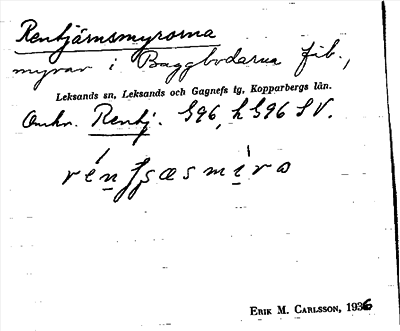 Rentjärnsmyrorna
myrar i Baggbodarna fib.,
Leksands sn, Leksands och Gagnefs tg, Kopparbergs län.
Omkr. Rentj. G96, h G96 SV.
ERIK M. CARLSSON, 1936